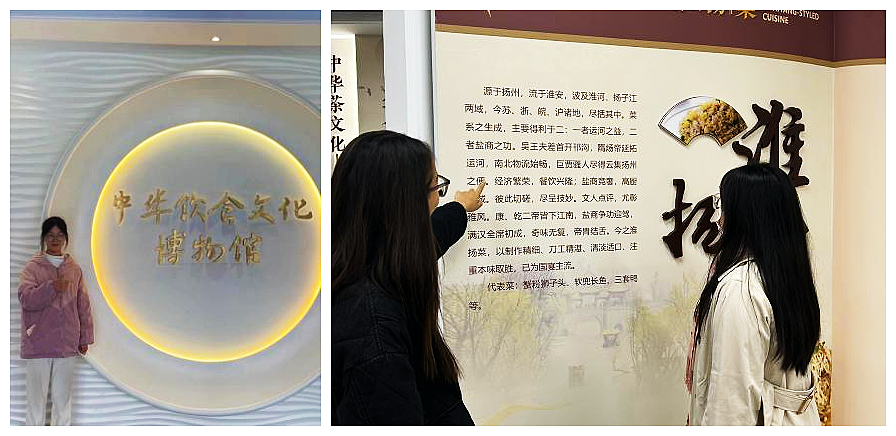 中华饮食文化
博物馆
中华茶文化
CUISINE
源于扬州，流于淮安，波及淮河、扬子江
两域，今苏、浙、皖、沪诸地，尽括其中。菜
系之生成，主要得利于二：一者运河之益，二
者盐商之功。吴王夫差首开邗沟，隋炀帝延拓
运河，南北物流始畅，巨贾骚人尽得云集扬州
之便。经济繁荣，餐饮兴隆；盐商竞奢，高厨
成。彼此切磋，尽呈技妙。文人点评，尤彰
雅风。康、乾二帝皆下江南，盐商争功迎驾，
满汉全席初成，奇味无复，帝胄结舌。今之淮
扬菜，以制作精细、刀工精湛、清淡适口、注
重本味取胜，已为国宴主流。
代表菜：蟹粉狮子头、软兜长鱼、三套鸭
等。
淮
扬